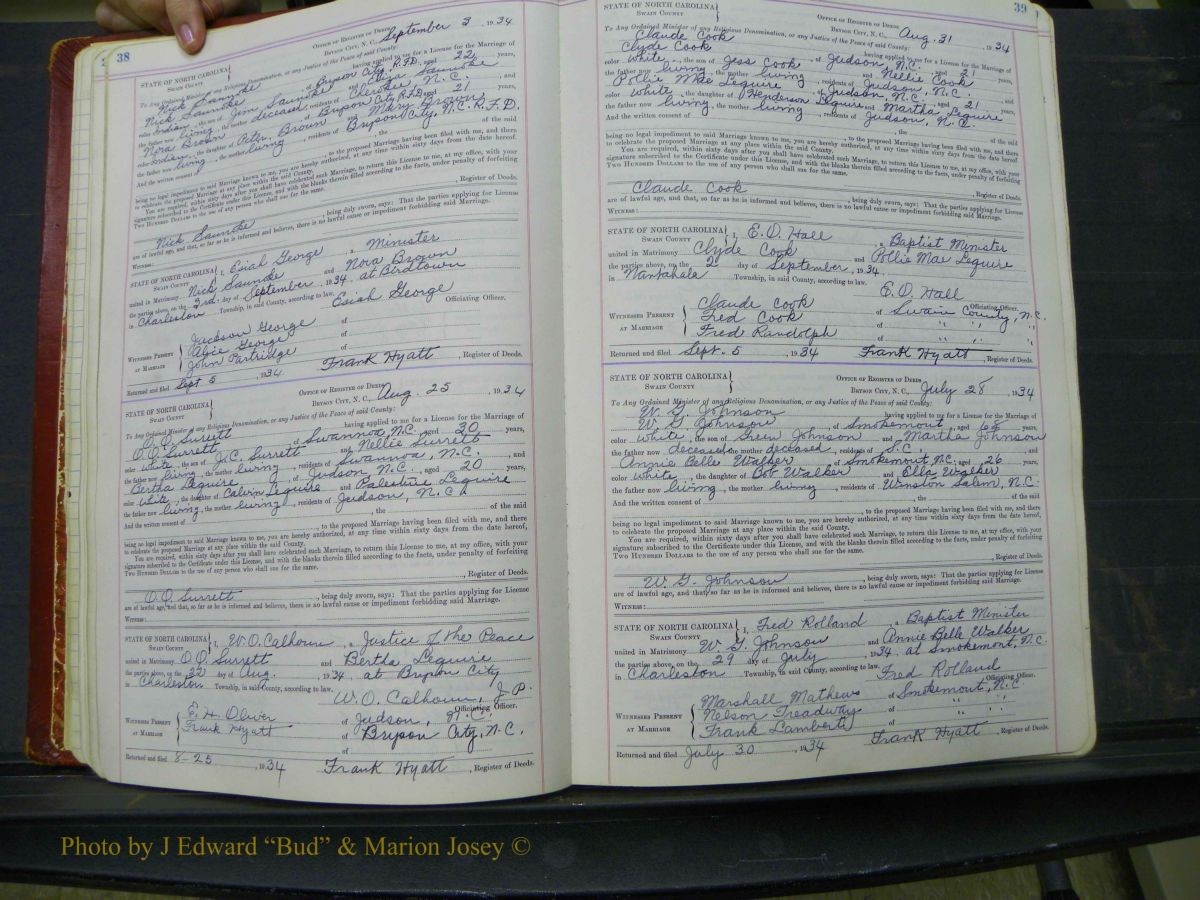 38
STATE OF NORTH CAROLINA
SWAIN COUNTY
OFFICE OF REGISTER OF DEEDS
BRYSON CITY, N. C., September 3 , 1934
To Any Ordained Minister of any Religious Denomination, or any Justice of the Peace of said County:
Nick Saunoke having applied to me for a License for the Marriage of
Nick Saunoke of Bryson City, R.F.D. aged 22 years,
color Indian, the son of Jim Saunoke and Saunoke
the father now living, the mother deceased, residents of Cherokee, N.C. , and
Nora Brown of Bryson City, R.F.D. aged 21 years,
color Indian, the daughter of Peter Brown and Mary Brown
the father now living, the mother living, residents of Bryson City, N.C. R.F.D.
And the written consent of , the of the said
, to the proposed Marriage having been filed with me, and there
being no legal impediment to said Marriage known to me, you are hereby authorized, at any time within sixty days from the date hereof,
to celebrate the proposed Marriage at any place within the said County.
You are required, within sixty days after you shall have celebrated such Marriage, to return this License to me, at my office, with your
signature subscribed to the Certificate under this License, and with the blanks therein filled according to the facts, under penalty of forfeiting
TWO HUNDRED DOLLARS to the use of any person who shall sue for the same.
, Register of Deeds.
Nick Saunoke , being duly sworn, says: That the parties applying for License
are of lawful age, and that, so far as he is informed and believes, there is no lawful cause or impediment forbidding said Marriage.
WITNESS:
STATE OF NORTH CAROLINA
SWAIN COUNTY
I, Esiah George , a Minister
united in Matrimony Nick Saunoke and Nora Brown
the parties above, on the 3rd. day of September , 1934. at Birdtown
in Charleston Township, in said County, according to law.
Esiah George
Officiating Officer.
WITNESSES PRESENT AT MARRIAGE
Jackson George of
Alsie George of
John Partridge of
Returned and filed Sept 5 , 1934 Frank Hyatt , Register of Deeds.
STATE OF NORTH CAROLINA
SWAIN COUNTY
OFFICE OF REGISTER OF DEEDS
BRYSON CITY, N. C., Aug. 25 , 1934
To Any Ordained Minister of any Religious Denomination, or any Justice of the Peace of said County:
O.O. Surrett having applied to me for a License for the Marriage of
O.O. Surrett of Swannoa, N.C. aged 30 years,
color white, the son of J.C. Surrett and Nellie Surrett
the father now living, the mother living, residents of Swannoa, N.C. , and
Bertha Lequire of Judson, N.C. , aged 20 years,
color white, the daughter of Calvin Lequire and Palestine Lequire
the father now living, the mother living, residents of Judson, N.C.
And the written consent of , the of the said
, to the proposed Marriage having been filed with me, and there
being no legal impediment to said Marriage known to me, you are hereby authorized, at any time within sixty days from the date hereof,
to celebrate the proposed Marriage at any place within the said County.
You are required, within sixty days after you shall have celebrated such Marriage, to return this License to me, at my office, with your
signature subscribed to the Certificate under this License, and with the blanks therein filled according to the facts, under penalty of forfeiting
TWO HUNDRED DOLLARS to the use of any person who shall sue for the same.
, Register of Deeds.
O.O. Surrett , being duly sworn, says: That the parties applying for License
are of lawful age, and that, so far as he is informed and believes, there is no lawful cause or impediment forbidding said Marriage.
WITNESS:
STATE OF NORTH CAROLINA
SWAIN COUNTY
I, W.O. Calhoun , a Justice of the Peace
united in Matrimony O.O. Surrett and Bertha Lequire
the parties above, on the day of Aug. , 1934, at Bryson City
in Charleston Township, in said County, according to law.
W.O. Calhoun, J.P.
Officiating Officer.
WITNESSES PRESENT AT MARRIAGE
E. H. Oliver of Judson, N.C.
Frank Hyatt of Bryson City, N.C.
of
Returned and filed 8-25 , 1934 Frank Hyatt , Register of Deeds.
39
STATE OF NORTH CAROLINA
SWAIN COUNTY
OFFICE OF REGISTER OF DEEDS
BRYSON CITY, N. C., Aug. 31 , 1934
To Any Ordained Minister of any Religious Denomination, or any Justice of the Peace of said County:
Claude Cook having applied to me for a License for the Marriage of
Clyde Cook of Judson, N.C. aged 21 years,
color white, the son of Jess Cook and Nellie Cook
the father now living, the mother living, residents of Judson, N.C. , and
Pollie Mae Lequire of Judson, N.C. , aged 21 years,
color white, the daughter of Henderson Lequire and Martha Lequire
the father now living, the mother living, residents of Judson, N.C.
And the written consent of , the of the said
, to the proposed Marriage having been filed with me, and there
being no legal impediment to said Marriage known to me, you are hereby authorized, at any time within sixty days from the date hereof,
to celebrate the proposed Marriage at any place within the said County.
You are required, within sixty days after you shall have celebrated such Marriage, to return this License to me, at my office, with your
signature subscribed to the Certificate under this License, and with the blanks therein filled according to the facts, under penalty of forfeiting
TWO HUNDRED DOLLARS to the use of any person who shall sue for the same.
, Register of Deeds.
Claude Cook , being duly sworn, says: That the parties applying for License
are of lawful age, and that, so far as he is informed and believes, there is no lawful cause or impediment forbidding said Marriage.
WITNESS:
STATE OF NORTH CAROLINA
SWAIN COUNTY
I, E.O. Hall , a Baptist Minister
united in Matrimony Clyde Cook and Pollie Mae Lequire
the parties above, on the 2 day of September , 1934.
in Nantahala Township, in said County, according to law.
E.O. Hall
Officiating Officer.
WITNESSES PRESENT AT MARRIAGE
Claude Cook of Swain County, N.C.
Fred Cook of " " "
Fred Randolph of " " "
Returned and filed Sept. 5 , 1934 Frank Hyatt , Register of Deeds.
STATE OF NORTH CAROLINA
SWAIN COUNTY
OFFICE OF REGISTER OF DEEDS
BRYSON CITY, N. C., July 28 , 1934
To Any Ordained Minister of any Religious Denomination, or any Justice of the Peace of said County:
W. G. Johnson having applied to me for a License for the Marriage of
W. G. Johnson of Smokemont, aged years,
color white, the son of Green Johnson and Martha Johnson
the father now deceased, the mother deceased, residents of S.C. , and
Annie Belle Walker of Smokemont N.C. aged 26 years,
color white, the daughter of Bob Walker and Ella Walker
the father now living, the mother living, residents of Winston Salem, N.C.
And the written consent of , the of the said
, to the proposed Marriage having been filed with me, and there
being no legal impediment to said Marriage known to me, you are hereby authorized, at any time within sixty days from the date hereof,
to celebrate the proposed Marriage at any place within the said County.
You are required, within sixty days after you shall have celebrated such Marriage, to return this License to me, at my office, with your
signature subscribed to the Certificate under this License, and with the blanks therein filled according to the facts, under penalty of forfeiting
TWO HUNDRED DOLLARS to the use of any person who shall sue for the same.
, Register of Deeds.
W. G. Johnson , being duly sworn, says: That the parties applying for License
are of lawful age, and that, so far as he is informed and believes, there is no lawful cause or impediment forbidding said Marriage.
WITNESS:
STATE OF NORTH CAROLINA
SWAIN COUNTY
I, Fred Rolland , a Baptist Minister
united in Matrimony W. G. Johnson and Annie Belle Walker
the parties above, on the 29 day of July , 1934. at Smokemont, N.C.
in Charleston Township, in said County, according to law.
Fred Rolland
Officiating Officer.
WITNESSES PRESENT AT MARRIAGE
Marshall Mathews of Smokemont, N.C.
Nelson Treadway of " "
Frank Lambert of " "
Returned and filed July 30 , 1934 Frank Hyatt , Register of Deeds.
Photo by J Edward “Bud” & Marion Josey ©